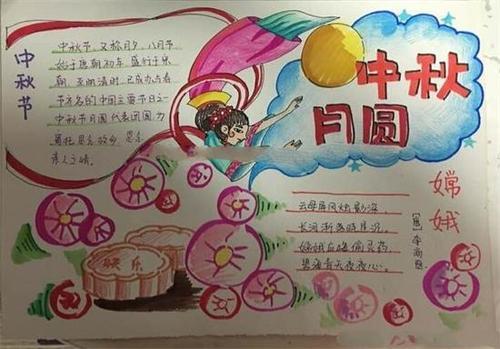 中秋节
中秋节,又称月夕,八月节
始于唐朝初年,盛行于宋
朝,至明清时,已成为与春
节齐名的中国主要节日之一
中秋节月圆代表团圆为
寄托思念故乡,思念
亲人之情。
中秋
月圆
嫦娥
[唐]李商隐
云母屏风烛影深,
长河渐落晓星沉。
嫦娥应悔偷灵药,
碧海青天夜夜心。
快乐